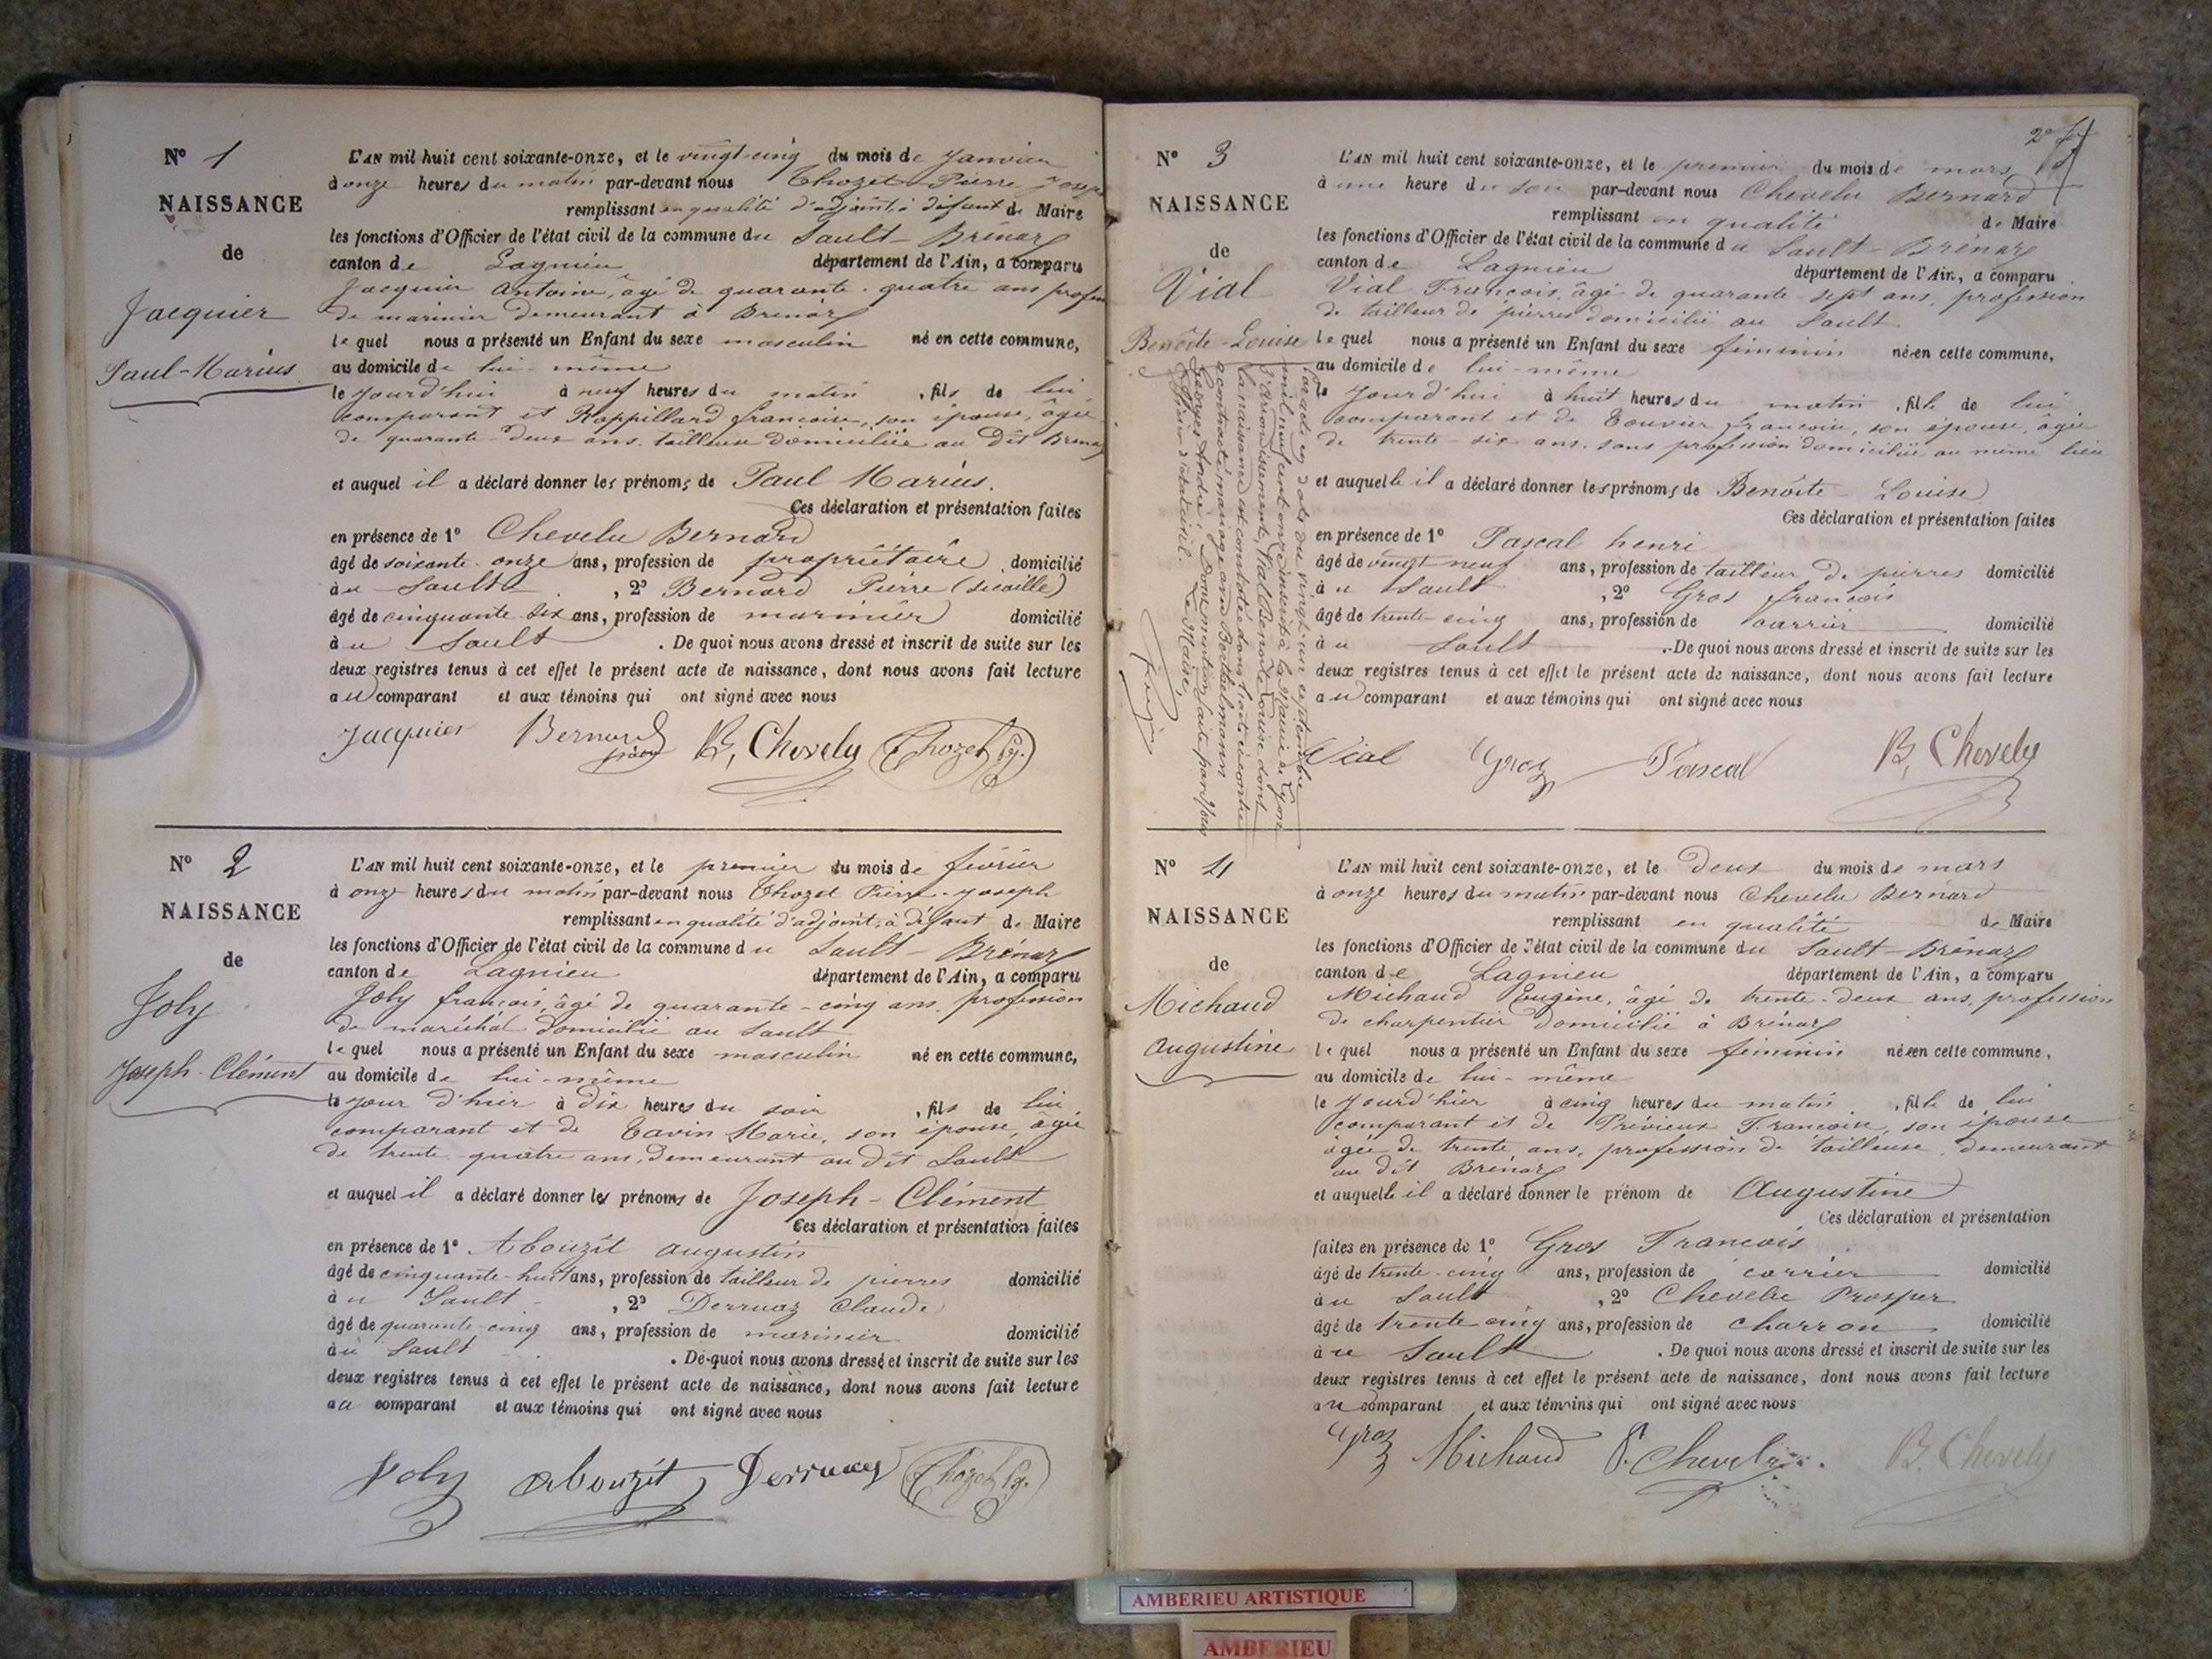 N° 1
NAISSANCE
de
Jacquier
Paul-Marius
L'AN mil huit cent soixante-onze, et le vingt-cinq du mois de Janvier
à onze heures du matin par-devant nous Chozet Pierre Joseph
remplissant en qualité d'adjoint, à défaut de Maire
les fonctions d'Officier de l'état civil de la commune du Sault-Brénaz
canton de Lagnieu département de l'Ain, a comparu
Jacquier Antoine, âgé de quarante-quatre ans profes
de marinier demeurant à Brénaz
lequel nous a présenté un Enfant du sexe masculin né en cette commune,
au domicile de lui-même
le jourd'hui à neuf heures du matin, fils de lui
comparant et Rappillard françoise, son épouse, âgée
de quarante-deux ans, tailleuse domiciliée au dit Brénaz
et auquel il a déclaré donner les prénoms de Paul Marius.
Ces déclaration et présentation faites
en présence de 1° Chevelu Bernard
âgé de soixante-onze ans, profession de propriétaire domicilié
au Sault, 2° Bernard Pierre
âgé de cinquante six ans, profession de marinier domicilié
au Sault. De quoi nous avons dressé et inscrit de suite sur les
deux registres tenus à cet effet le présent acte de naissance, dont nous avons fait lecture
au comparant et aux témoins qui ont signé avec nous
Jacquier Bernard pierre B. Chevelu Chozet Pj.
N° 2
NAISSANCE
de
Joly
Joseph-Clément
L'AN mil huit cent soixante-onze, et le premier du mois de février
à onze heures du matin par-devant nous Chozet Pierre-Joseph
remplissant en qualité d'adjoint, à défaut de Maire
les fonctions d'Officier de l'état civil de la commune du Sault-Brénaz
canton de Lagnieu département de l'Ain, a comparu
Joly françois, âgé de quarante-cinq ans, profession
de maréchal domicilié au Sault
lequel nous a présenté un Enfant du sexe masculin né en cette commune,
au domicile de lui-même
le jour d'hier à dix heures du soir, fils de lui
comparant et de Tavin Marie, son épouse, âgée
de trente-quatre ans, demeurant au dit Sault
et auquel il a déclaré donner les prénoms de Joseph-Clément
Ces déclaration et présentation faites
en présence de 1° Abouzit Augustin
âgé de cinquante-huit ans, profession de tailleur de pierres domicilié
au Sault, 2° Derruaz Claude
âgé de quarante-cinq ans, profession de marinier domicilié
au Sault. De quoi nous avons dressé et inscrit de suite sur les
deux registres tenus à cet effet le présent acte de naissance, dont nous avons fait lecture
au comparant et aux témoins qui ont signé avec nous
Joly Abouzit Derruaz Chozet Pj.
N° 3
NAISSANCE
de
Vial
Benoîte-Louise
Par acte en date du vingt-un septembre
mil neuf cent onze inscrit à la Mairie de Lyon
arrondissement, Vial Benoîte Louise dont
la naissance est constatée dans l'acte ci-contre
a contracté mariage avec Berthelmann
Georges André. Dont mention faite par Nous
Officier d'état civil. Le Maire,
L'AN mil huit cent soixante-onze, et le premier du mois de mars
à une heure du soir par-devant nous Chevelu Bernard
remplissant en qualité de Maire
les fonctions d'Officier de l'état civil de la commune du Sault-Brénaz
canton de Lagnieu département de l'Ain, a comparu
Vial François, âgé de quarante-sept ans, profession
de tailleur de pierres domicilié au Sault
lequel nous a présenté un Enfant du sexe féminin née en cette commune,
au domicile de lui-même
le Jourd'hui à huit heures du matin, fille de lui
comparant et de Bouvier françoise, son épouse, âgée
de trente-six ans, sans profession domiciliée au même lieu
et auquelle il a déclaré donner les prénoms de Benoîte-Louise
Ces déclaration et présentation faites
en présence de 1° Pascal henri
âgé de vingt neuf ans, profession de tailleur de pierres domicilié
au Sault, 2° Gros françois
âgé de trente cinq ans, profession de carrier domicilié
au Sault. De quoi nous avons dressé et inscrit de suite sur les
deux registres tenus à cet effet le présent acte de naissance, dont nous avons fait lecture
au comparant et aux témoins qui ont signé avec nous
Vial Gros Pascal B. Chevelu
N° 4
NAISSANCE
de
Michaud
Augustine
L'AN mil huit cent soixante-onze, et le deux du mois de mars
à onze heures du matin par-devant nous Chevelu Bernard
remplissant en qualité de Maire
les fonctions d'Officier de l'état civil de la commune du Sault-Brénaz
canton de Lagnieu département de l'Ain, a comparu
Michaud Eugène, âgé de trente-deux ans, profession
de charpentier domicilié à Brénaz
lequel nous a présenté un Enfant du sexe féminin née en cette commune,
au domicile de lui-même
le jourd'hier à cinq heures du matin, fille de lui
comparant et de Prévieux Françoise, son épouse
âgée de trente ans, profession de tailleuse, demeurant
au dit Brénaz
et auquelle il a déclaré donner le prénom de Augustine
Ces déclaration et présentation
faites en présence de 1° Gros François
âgé de trente-cinq ans, profession de carrier domicilié
au Sault, 2° Chevelu Prosper
âgé de trente cinq ans, profession de charron domicilié
au Sault. De quoi nous avons dressé et inscrit de suite sur les
deux registres tenus à cet effet le présent acte de naissance, dont nous avons fait lecture
au comparant et aux témoins qui ont signé avec nous
Gros Michaud P. Chevelu B. Chevelu
AMBERIEU ARTISTIQUE
AMBERIEU